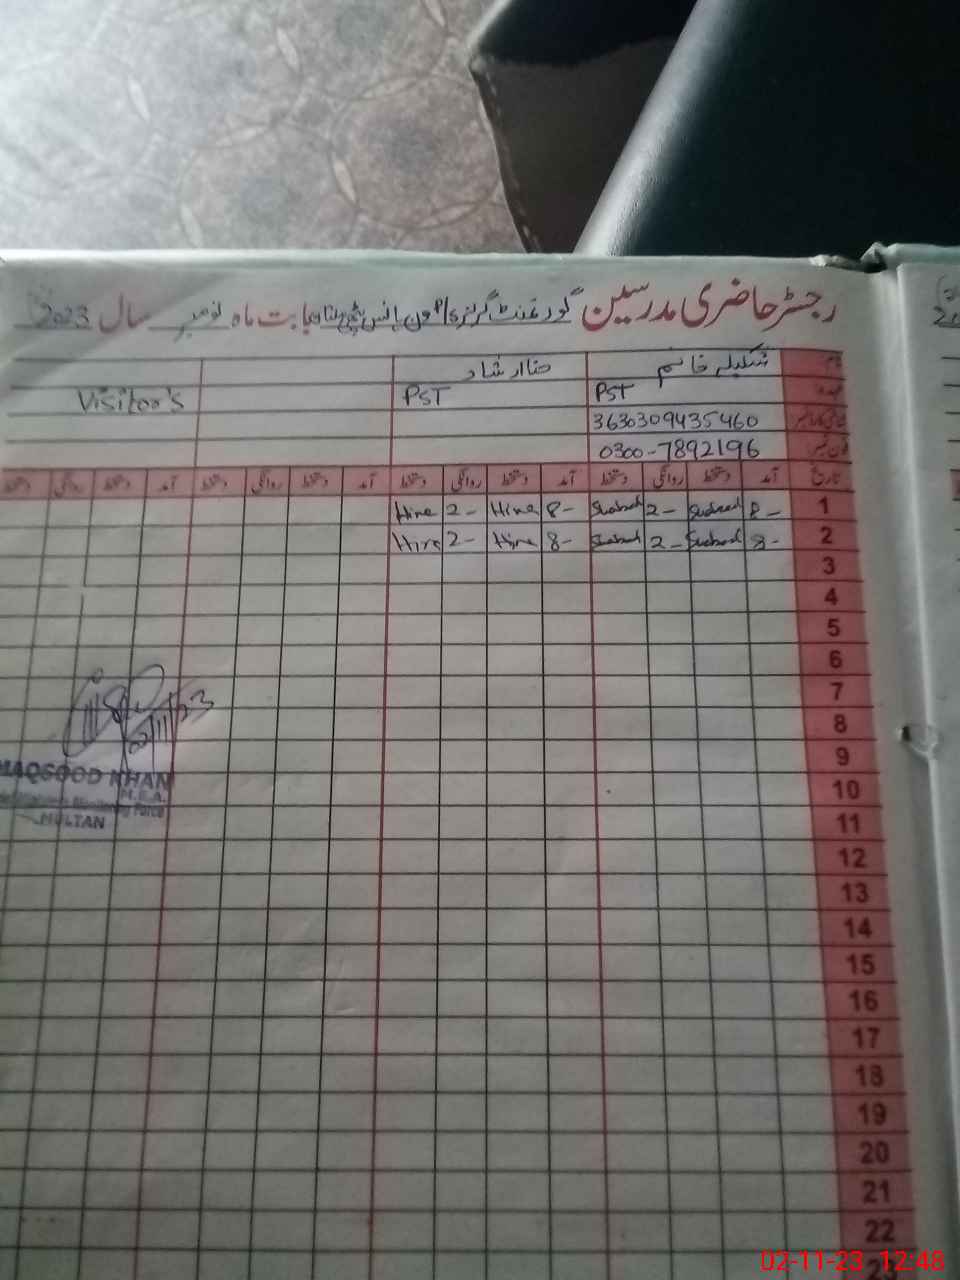 رجسٹر حاضری مدرسین گورنمنٹ گرلز بابت ماہ نومبر سال 2023
نام شکیلہ قاسم حنا ارشاد
عہدہ PST PST Visitor's
شناختی کارڈ نمبر 3630309435460
فون نمبر 0300-7892196
تاریخ آمد دستخط روانگی دستخط آمد دستخط روانگی دستخط آمد دستخط روانگی دستخط آمد دستخط روانگی دستخط
1 8- 2- 8- Hina 2- Hina
2 8- 2- 8- Hina 2- Hina
3
4
5
6
7
8
9
10
11
12
13
14
15
16
17
18
19
20
21
22
02/11/23
MAQSOOD KHAN
M.E.A.
Monitoring Force
MULTAN
02-11-23 12:48